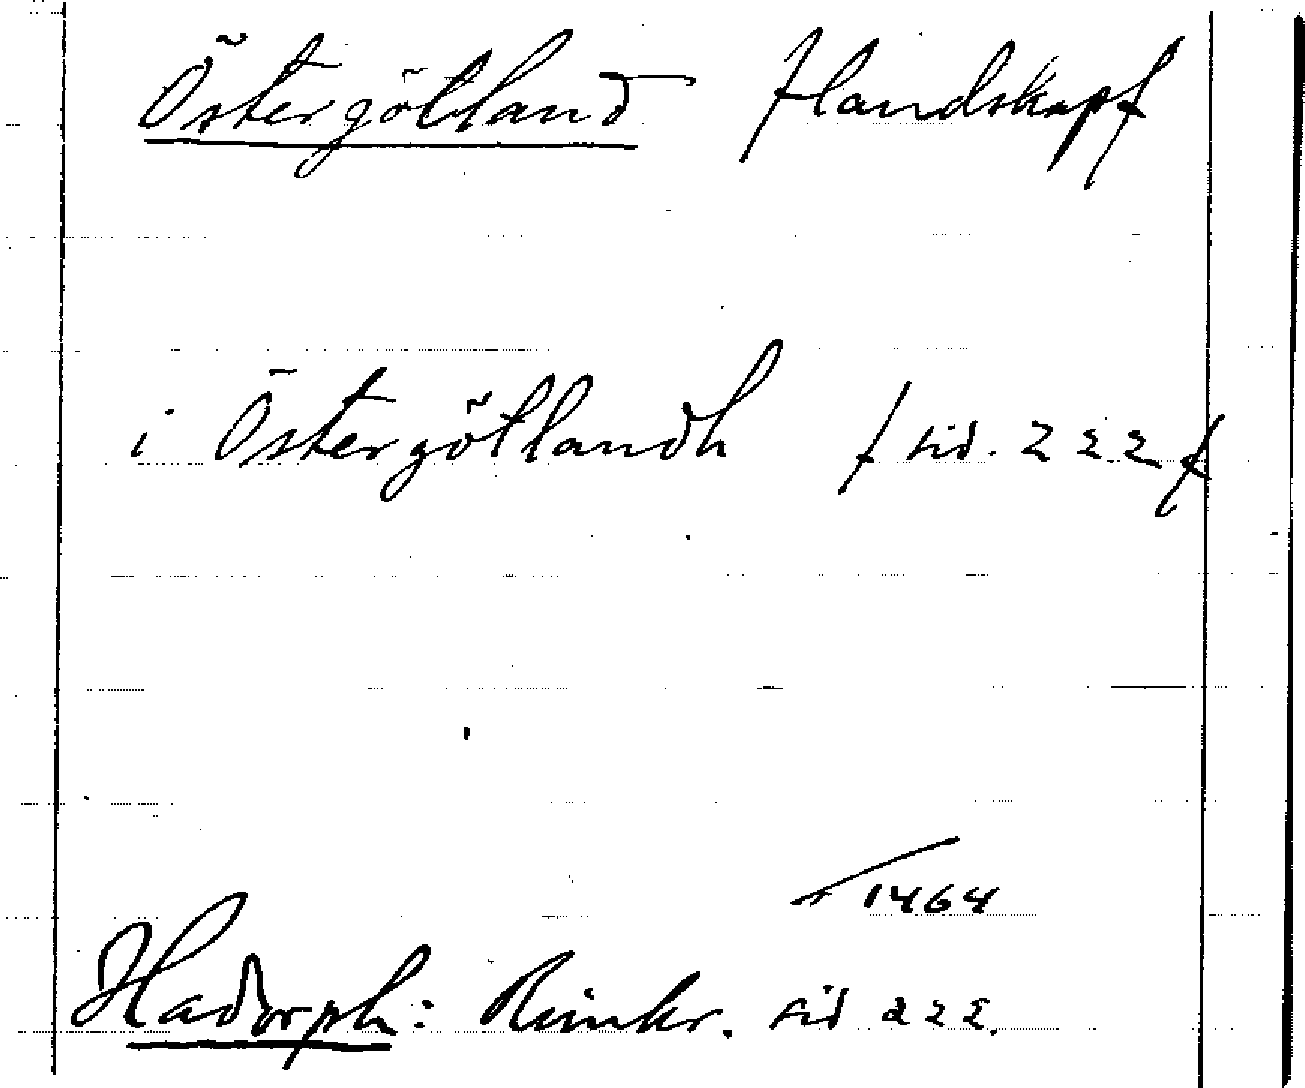 Östergötland /landskap/
i Östergötlandh / sid. 222 /
1464
Hadorph: Rimkr. sid 222.